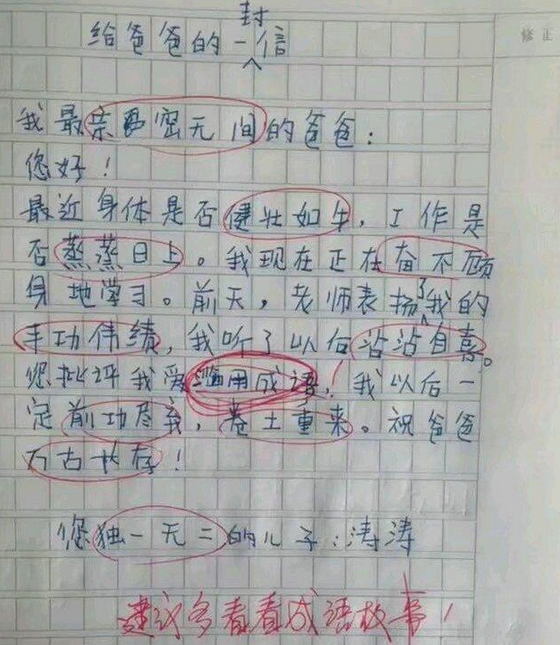 修正
给爸爸的一封信
我最亲密无间的爸爸：
您好！
最近身体是否健壮如牛，工作是
否蒸蒸日上。我现在正在奋不顾
身地学习。前天，老师表扬了我的
丰功伟绩，我听了以后沾沾自喜。
您批评我爱滥用成语，我以后一
定前功尽弃，卷土重来。祝爸爸
万古长存！
您独一无二的儿子：涛涛
建议多看看成语故事！